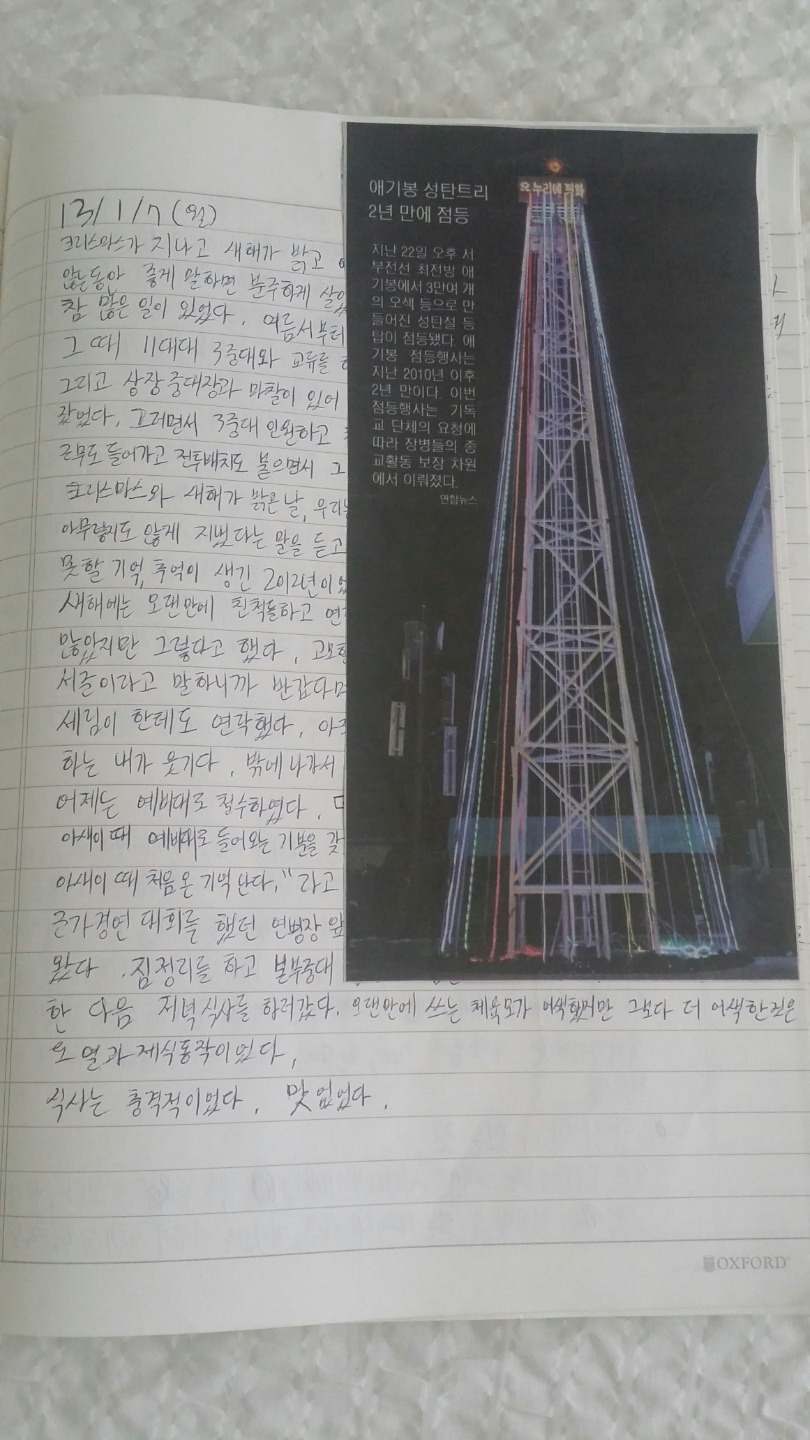 13/1/7 (월)
크리스마스가 지나고 새해가 밝고
않는동안 좋게 말하면 분주하게 살았
참 많은 일이 있었다. 여름서부터
그 때 11대대 3중대와 교류를 하
그리고 상장 중대장과 마찰이 있어
갔었다. 그러면서 3중대 인원하고
근무도 들어가고 전투배치도 붙으면서 그
크리스마스와 새해가 밝은 날, 우리는
아무렇지도 않게 지냈다는 말을 듣고
못할 기억, 추억이 생긴 2012년이었
새해에는 오랜만에 친척들하고 연락
않았지만 그렇다고 했다. 고모한
서준이라고 말하니까 반갑다며
세림이 한테도 연락했다. 아직
하는 내가 웃기다. 밖에 나가서
어제는 예비대로 철수하였다.
아새이 때 예비대로 들어오는 기분을 갖
아새이 때 처음 온 기억 난다." 라고
군가경연 대회를 했던 연병장 앞
왔다. 짐정리를 하고 본부중대
한 다음 저녁식사를 하러갔다. 오랜만에 쓰는 체육모가 어색했지만 그보다 더 어색한것은
오열과 제식동작이었다.
식사는 충격적이었다. 맛 없었다.
애기봉 성탄트리
2년 만에 점등
지난 22일 오후 서
부전선 최전방 애
기봉에서 3만여 개
의 오색 등으로 만
들어진 성탄절 등
탑이 점등됐다. 애
기봉 점등행사는
지난 2010년 이후
2년 만이다. 이번
점등행사는 기독
교 단체의 요청에
따라 장병들의 종
교활동 보장 차원
에서 이뤄졌다.
연합뉴스
온누리에 평화
OXFORD